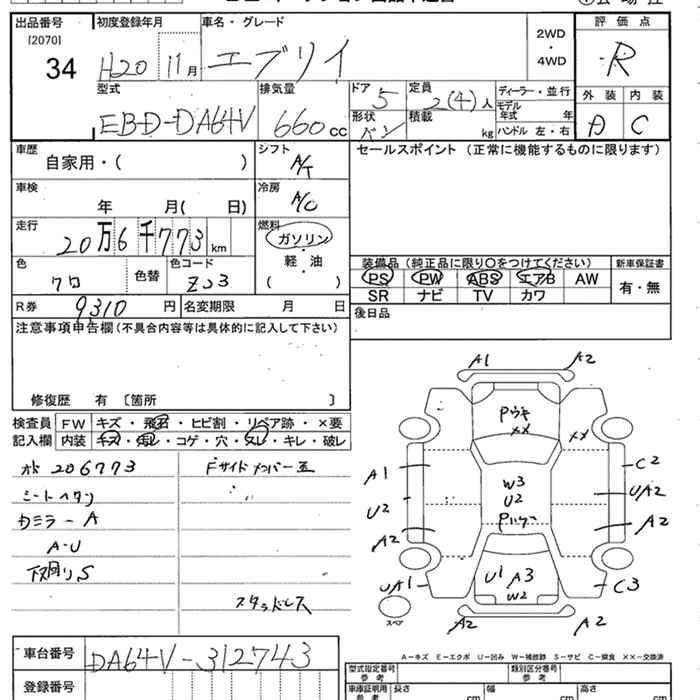 出品番号 初度登録年月 車名・グレード 評価点
[2070] 34 H20 11月 エブリイ 2WD・4WD R
型式 排気量 ドア 定員 ディーラー・並行 外装 内装
EBD-DA64V 660cc 5 2(4)人 モデル年式 年 A C
形状 バン 積載 kg ハンドル 左・右
車歴 自家用・( ) シフト A/T セールスポイント (正常に機能するものに限ります)
車検 年 月( 日) 冷房 A/C
走行 20万6千773km 燃料 ガソリン・軽・油 ( )
色 クロ 色替 色コード ZJ3
装備品 (純正品に限り○をつけてください) 新車保証書
PS PW ABS エアB AW 有・無
SR ナビ TV カワ
R券 9310円 名変期限 月 日 後日品
注意事項申告欄(不具合内容等は具体的に記入して下さい)
修復歴 有 〔箇所 〕
検査員 FW キズ・飛石・ヒビ割・リペア跡・×要
記入欄 内装 キズ・汚レ・コゲ・穴・スレ・キレ・破レ
206773 Fサイドメンバー
シートヘタリ
カミラーA
A-U
下廻りS
スタッドレス
A1 A2
Pウキ
××
××
A1 C2
W3
U2 U2 UA2
A2 A2
U1 A3
UA1 W2 C3
スペア
A2 A2
車台番号 DA64V-312743
A-キズ E-エクボ U-凹み W-補修跡 S-サビ C-腐食 ××-交換済
登録番号 型式指定番号 参考 類別区分番号 参考
車庫証明用 参考 長さ cm 幅 cm 高さ cm